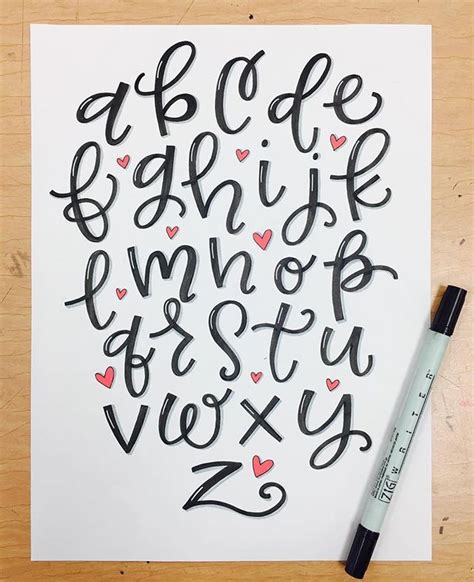 a b c d e
f g h i j k
l m n o p
q r s t u
v w x y
z
ZIG WRITER